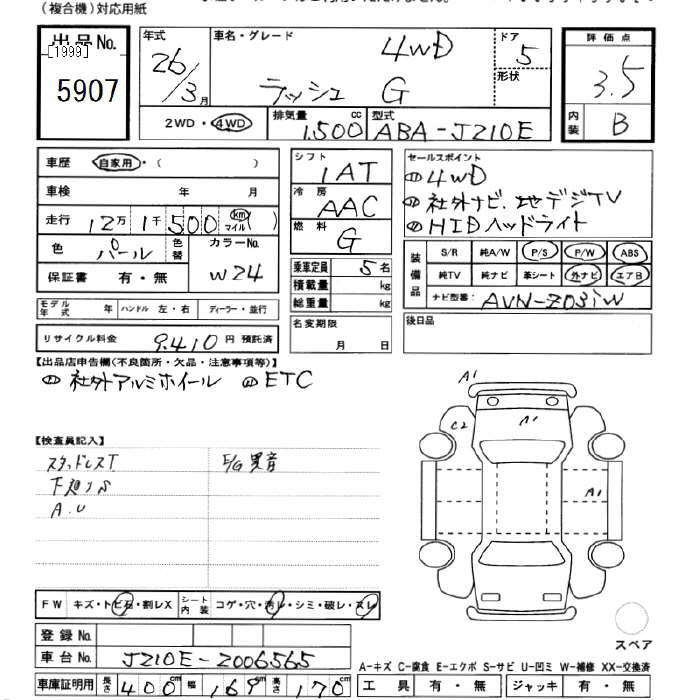 (複合機)対応用紙
出品No.
[1999]
5907
年式
26/3月
車名・グレード
4WD
ラッシュ G
ドア
5
形状
評価点
3.5
内装
B
2WD・4WD
排気量
1,500 cc
型式
ABA-J210E
車歴
自家用・( )
車検 年 月
走行 12万1千500 km (マイル)
色 パール 色替 カラーNo. W24
保証書 有・無
モデル年式 年 ハンドル 左・右 ディーラー・並行
リサイクル料金 9,410円 預託済
シフト
1AT
冷房
AAC
燃料
G
乗車定員 5名
積載量 kg
総重量 kg
名変期限
月 日
セールスポイント
4WD
社外ナビ、地デジTV
HIDヘッドライト
装備品
S/R 純A/W P/S P/W ABS
純TV 純ナビ 革シート 外ナビ エアB
ナビ型番: AVN-Z03iW
後日品
【出品店申告欄(不良箇所・欠品・注意事項等)】
社外アルミホイール ETC
【検査員記入】
スタッドレスT E/G異音
下廻りS
A.U
A1
C2
A1
A1
FW キズ・トビ石・割レX シート内装 コゲ・穴・汚レ・シミ・破レ・スレ
登録No.
車台No. J210E-2006565
車庫証明用 長さ 400cm 幅 169cm 高さ 170cm
スペア
A-キズ C-腐食 E-エクボ S-サビ U-凹ミ W-補修 XX-交換済
工具 有・無 ジャッキ 有・無